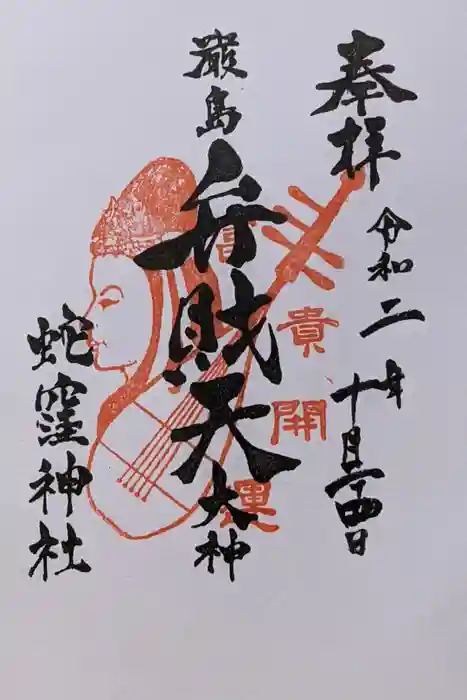 奉拝
令和二年十月二十四日
厳島弁財天大神
富貴開運
蛇窪神社